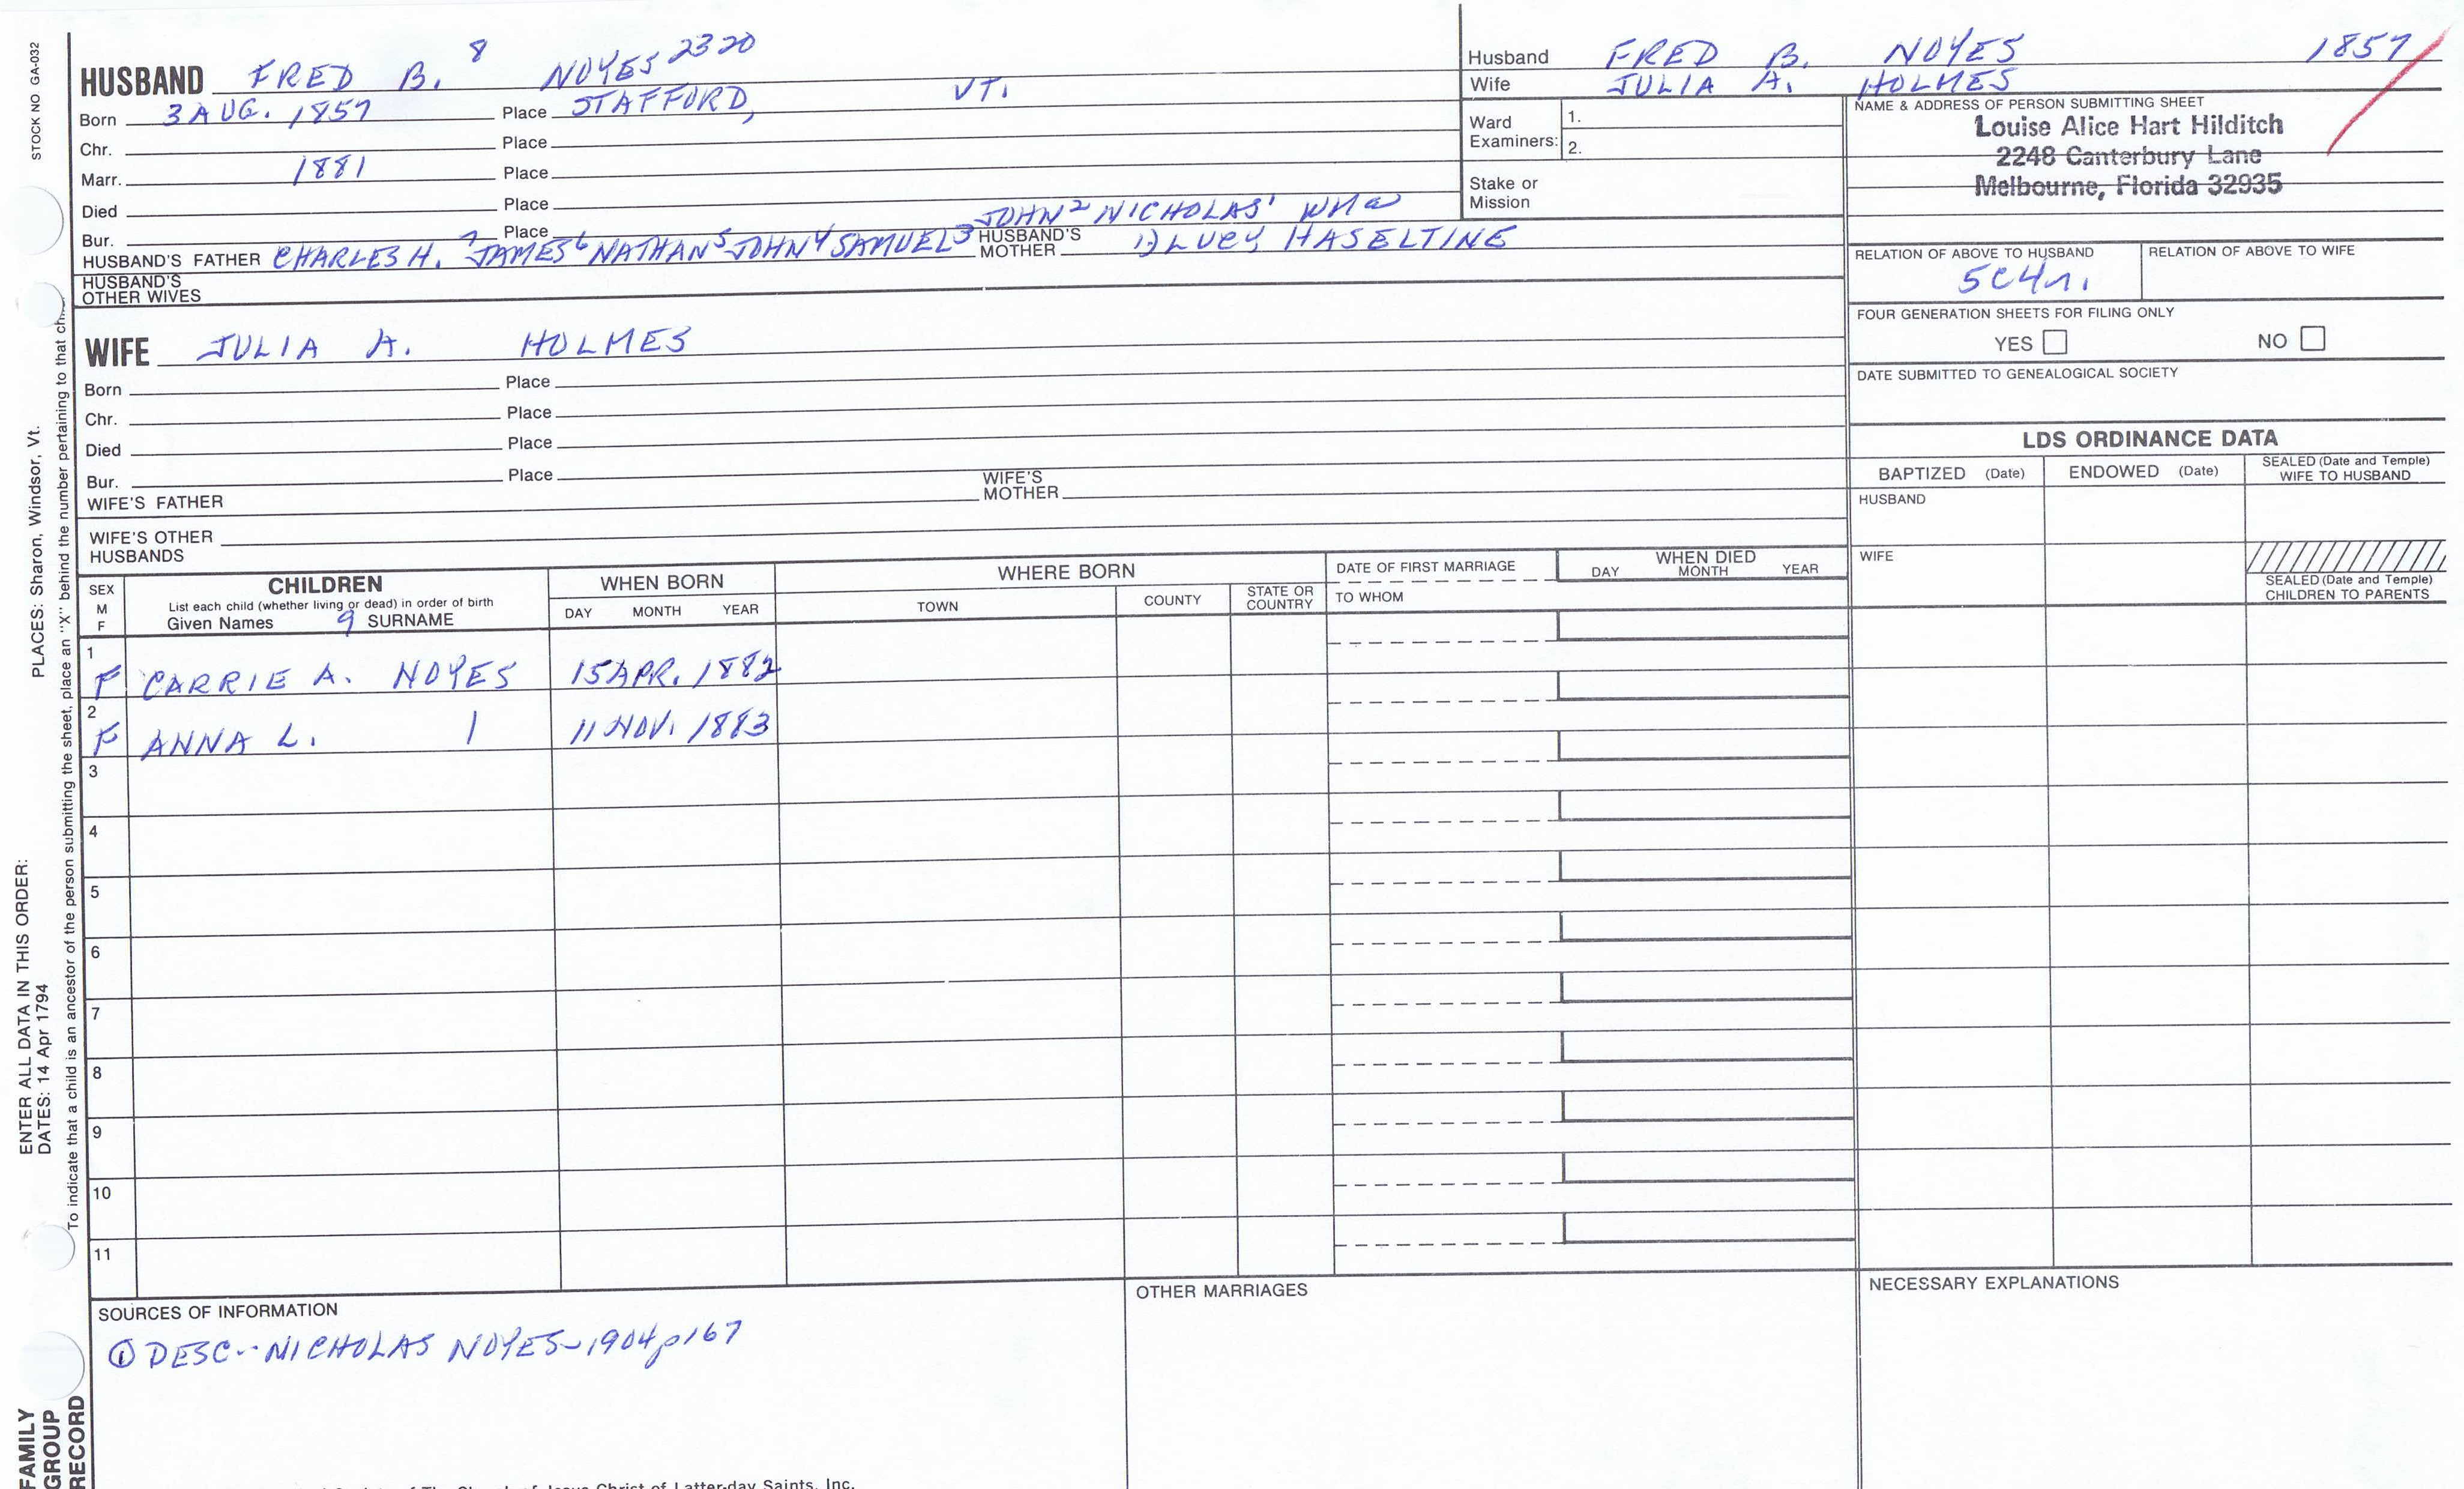 STOCK NO GA-032
PLACES: Sharon, Windsor, Vt.
ENTER ALL DATA IN THIS ORDER:
DATES: 14 Apr 1794
To indicate that a child is an ancestor of the person submitting the sheet, place an "X" behind the number pertaining to that
FAMILY
GROUP
RECORD
HUSBAND FRED B. 8 NOYES 2320
Born 3 AUG. 1857 Place STAFFORD, VT.
Chr. Place
Marr. 1881 Place
Died Place
Bur. Place
JOHN 2 NICHOLAS 1
HUSBAND'S FATHER CHARLES H. 7 JAMES 6 NATHAN 5 JOHN 4 SAMUEL 3 HUSBAND'S MOTHER 1) LUCY HASELTINE
HUSBAND'S
OTHER WIVES
WIFE JULIA A. HOLMES
Born Place
Chr. Place
Died Place
Bur. Place
WIFE'S FATHER WIFE'S MOTHER
WIFE'S OTHER
HUSBANDS
Husband FRED B. NOYES 1857
Wife JULIA A. HOLMES
Ward
Examiners: 1.
2.
Stake or
Mission
NAME & ADDRESS OF PERSON SUBMITTING SHEET
Louise Alice Hart Hilditch
2248 Canterbury Lane
Melbourne, Florida 32935
RELATION OF ABOVE TO HUSBAND RELATION OF ABOVE TO WIFE
5C4r.
FOUR GENERATION SHEETS FOR FILING ONLY
YES NO
DATE SUBMITTED TO GENEALOGICAL SOCIETY
LDS ORDINANCE DATA
BAPTIZED (Date) ENDOWED (Date) SEALED (Date and Temple)
WIFE TO HUSBAND
HUSBAND
WIFE
SEALED (Date and Temple)
CHILDREN TO PARENTS
SEX
M
F
CHILDREN
List each child (whether living or dead) in order of birth
Given Names 9 SURNAME
WHEN BORN
DAY MONTH YEAR
WHERE BORN
TOWN COUNTY STATE OR COUNTRY
DATE OF FIRST MARRIAGE
TO WHOM
WHEN DIED
DAY MONTH YEAR
1
F CARRIE A. NOYES 15 APR. 1882
2
F ANNA L. 11 NOV. 1883
3
4
5
6
7
8
9
10
11
SOURCES OF INFORMATION
① DESC-- NICHOLAS NOYES-1904 p167
OTHER MARRIAGES
NECESSARY EXPLANATIONS
The Church of Jesus Christ of Latter-day Saints, Inc.